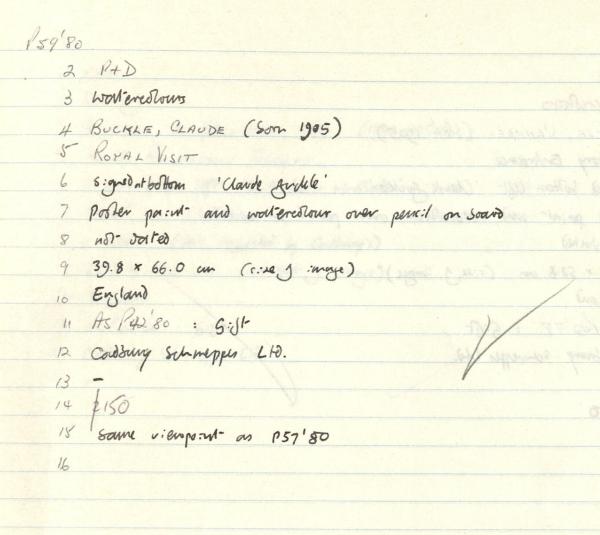 P59'80
2 P+D
3 watercolours
4 BUCKLE, CLAUDE (born 1905)
5 ROYAL VISIT
6 signed at bottom 'Claude Buckle'
7 Poster paint and watercolour over pencil on board
8 not dated
9 39.8 × 66.0 cm (size of image)
10 England
11 AS P42'80 : Gift
12 Cadbury Schweppes Ltd.
13 –
14 £150
15 Same viewpoint as P57'80
16